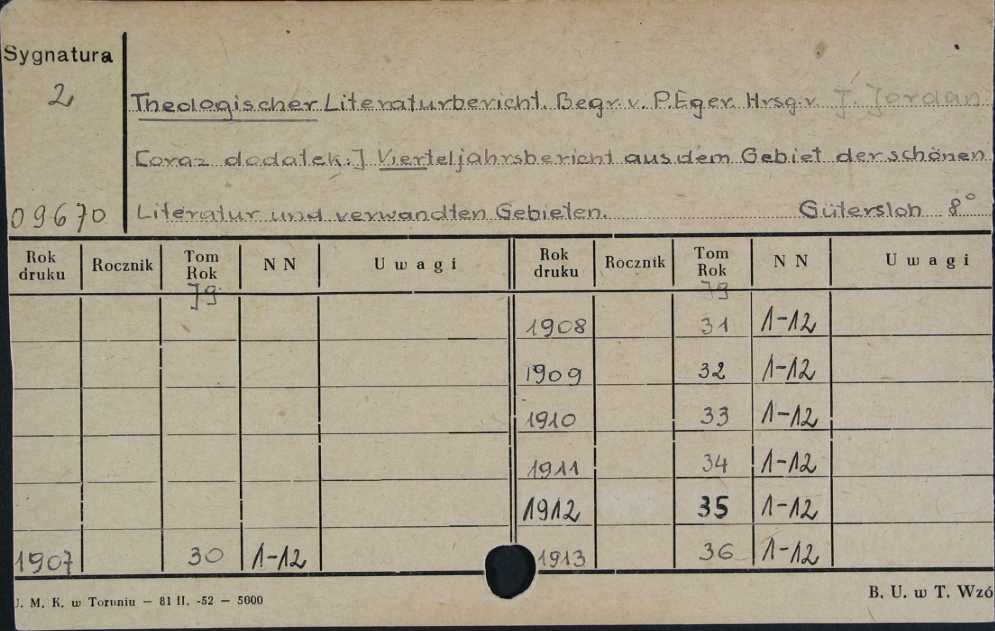 Sygnatura
2
Theologischer Literaturbericht. Begr. v. P. Eger. Hrsg. v. J. Jordan
[oraz dodatek:] Vierteljahrsbericht aus dem Gebiet der schönen
09670 Literatur und verwandten Gebieten. Gütersloh 8°
Rok druku Rocznik Tom Rok NN Uwagi Rok druku Rocznik Tom Rok NN Uwagi
Jg. Jg
1908 31 1-12
1909 32 1-12
1910 33 1-12
1911 34 1-12
1912 35 1-12
1907 30 1-12 1913 36 1-12
U. M. K. w Toruniu — 81 II. -52 — 5000 B. U. w T. Wzó